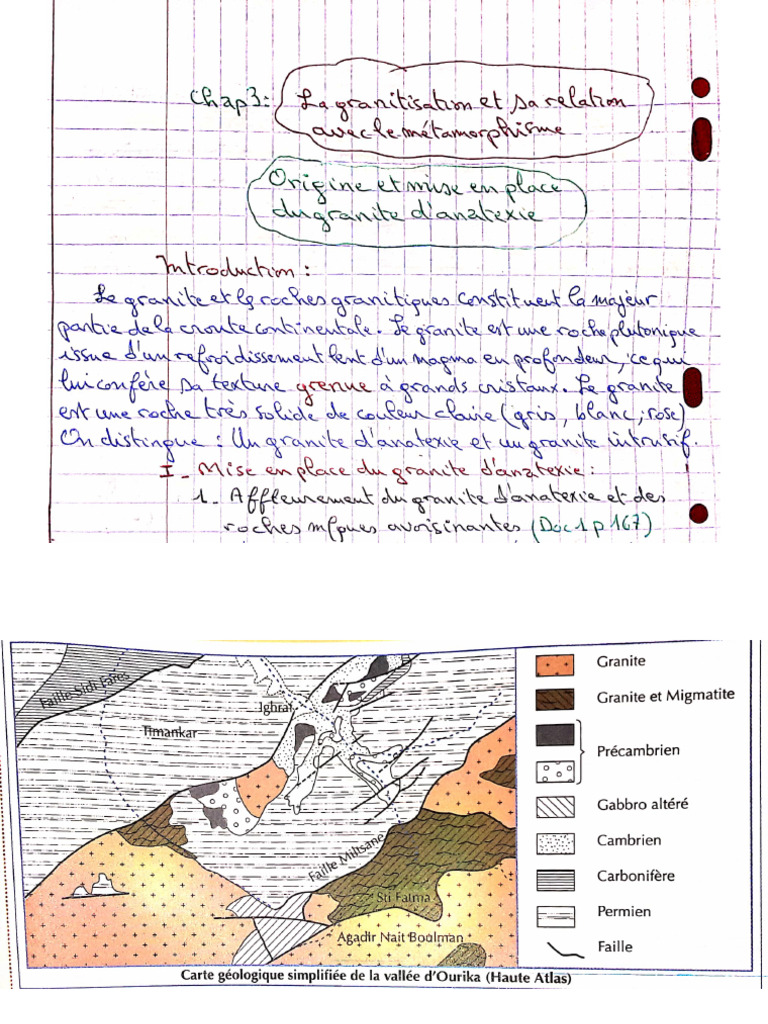 Chap3: La granitisation et sa relation
avec le métamorphisme
Origine et mise en place
du granite d'anatexie
Introduction :
Le granite et les roches granitiques constituent la majeur
partie de la croute continentale. Le granite est une roche plutonique
issue d'un refroidissement lent d'un magma en profondeur, ce qui
lui confère sa texture grenue à grands cristaux. Le granite
est une roche très solide de couleur claire (gris, blanc, rose)
On distingue : Un granite d'anatexie et un granite intrusif.
I - Mise en place du granite d'anatexie :
1 - Affleurement du granite d'anatexie et des
roches m(pues avoisinantes (Doc 1 p 167)
Faille Sidi Fares
Timankar
Ighraf
Faille Miltsane
Sti Fatma
Agadir Nait Boolman
Granite
Granite et Migmatite
Précambrien
Gabbro altéré
Cambrien
Carbonifère
Permien
Faille
Carte géologique simplifiée de la vallée d'Ourika (Haute Atlas)